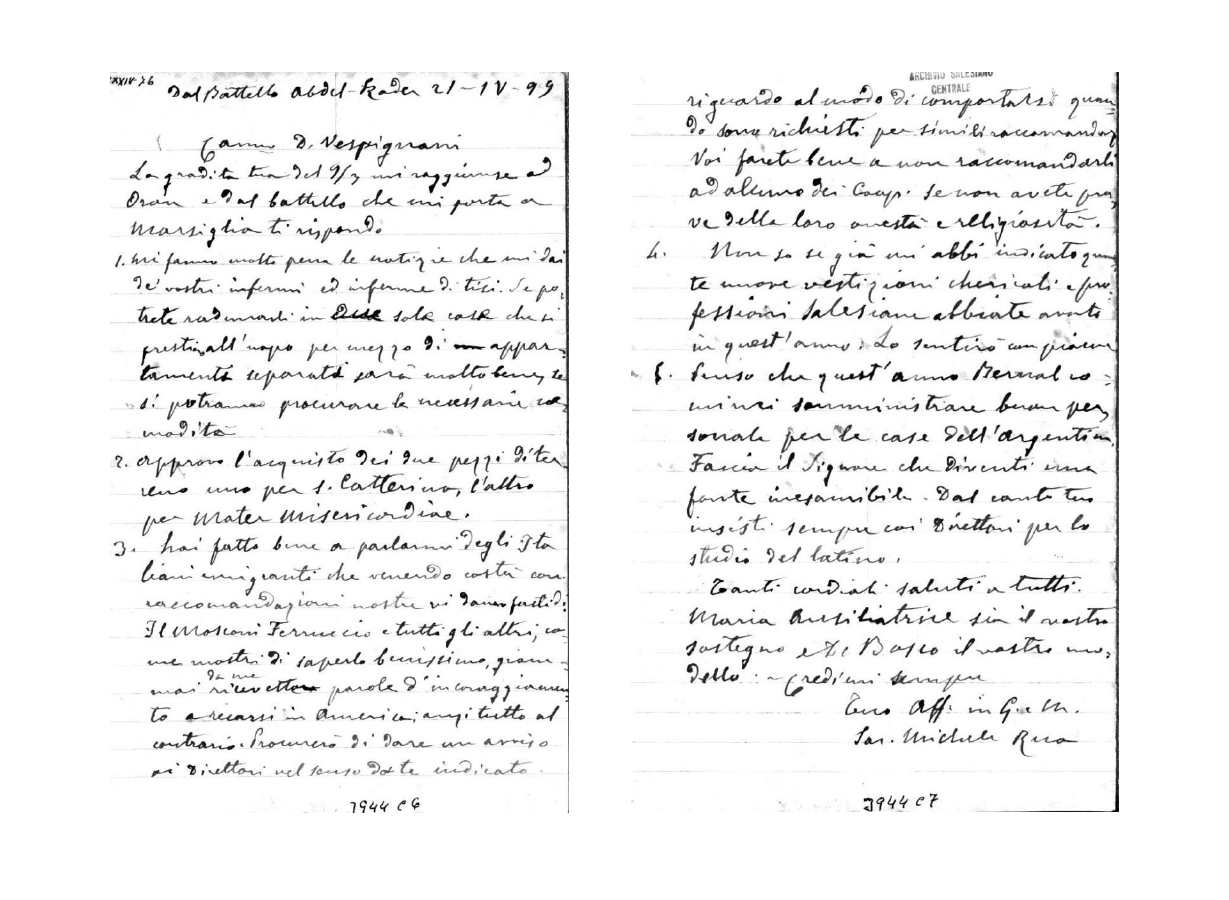 XXIV-76
Dal Battello Abdel-Kader 21-IV-99
Carmo D. Vespignani
La gradita tua del 9/3 mi raggiunse ad
Oran e dal battello che mi porta a
Marsiglia ti rispondo
1. Mi fanno molta pena le notizie che mi dai
de' vostri infermi ed inferme di tisi. Se po,
trete radunarli in sola casa che si
presti all'uopo per mezzo di appar-
tamenti separati sarà molto bene, se
si potranno procurare le necessarie co,
modità
2. Approvo l'acquisto dei due pezzi di ter-
reno uno per S. Catterina, l'altro
per Mater Misericordiae.
3. Hai fatto bene a parlarmi degli Ita
liani emigranti che venendo costà con
raccomandazioni nostre vi danno fastidi.
Il Mosconi Ferruccio e tutti gli altri, co-
me mostri di saperlo benissimo, giam-
mai da me ricevettero parole d'incoraggiamen
to a recarsi in America; anzi tutto al
contrario. Procurerò di dare un avviso
ai Direttori nel senso da te indicato.
J944 C6
ARCHIVIO SALESIANO
CENTRALE
riguardo al modo di comportarsi quan
do sono richiesti per simili raccomandaz
Voi farete bene a non raccomandarli
ad alcuno dei Coop. se non avete pro,
ve della loro onestà e religiosità.
4. Non so se già mi abbi indicato quan
te nuove vestizioni chericali e pro,
fessioni Salesiane abbiate avuto
in quest'anno: Lo sentirò con piacere
5. Penso che quest'anno Bernal co-
minci somministrare buon per,
sonale per le case dell'Argentina.
Faccia il Signore che diventi una
fonte inesauribile. Dal canto tuo
insisti sempre coi Direttori per lo
studio del latino.
Tanti cordiali saluti a tutti.
Maria Ausiliatrice sia il vostro
sostegno e D. Bosco il vostro mo,
dello: - Credimi sempre
Tuo Aff. in G. e M.
Sac. Michele Rua
J944 C7